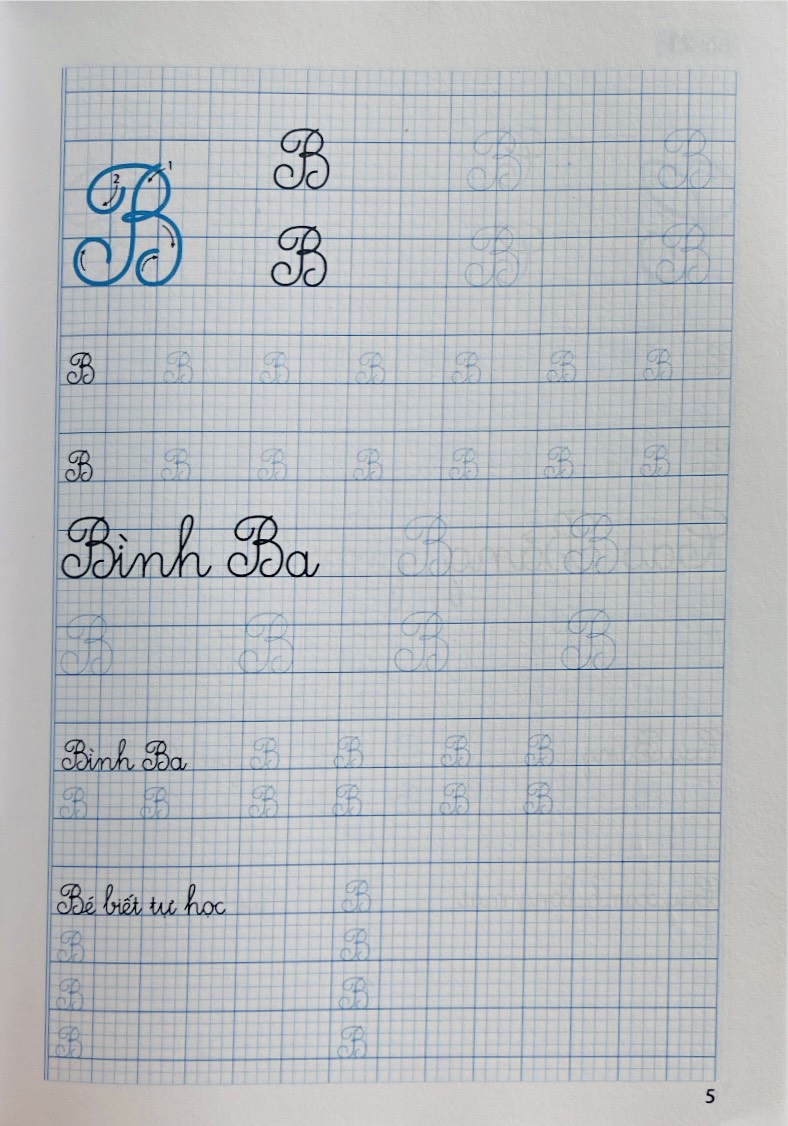 1
2
B
B B B
B B B
B B B B B B B
B B B B B B B
Bình Ba B B
B B B B
Bình Ba B B B B
B B B B B B
Bé biết tự học B
B B
B B
B B
5